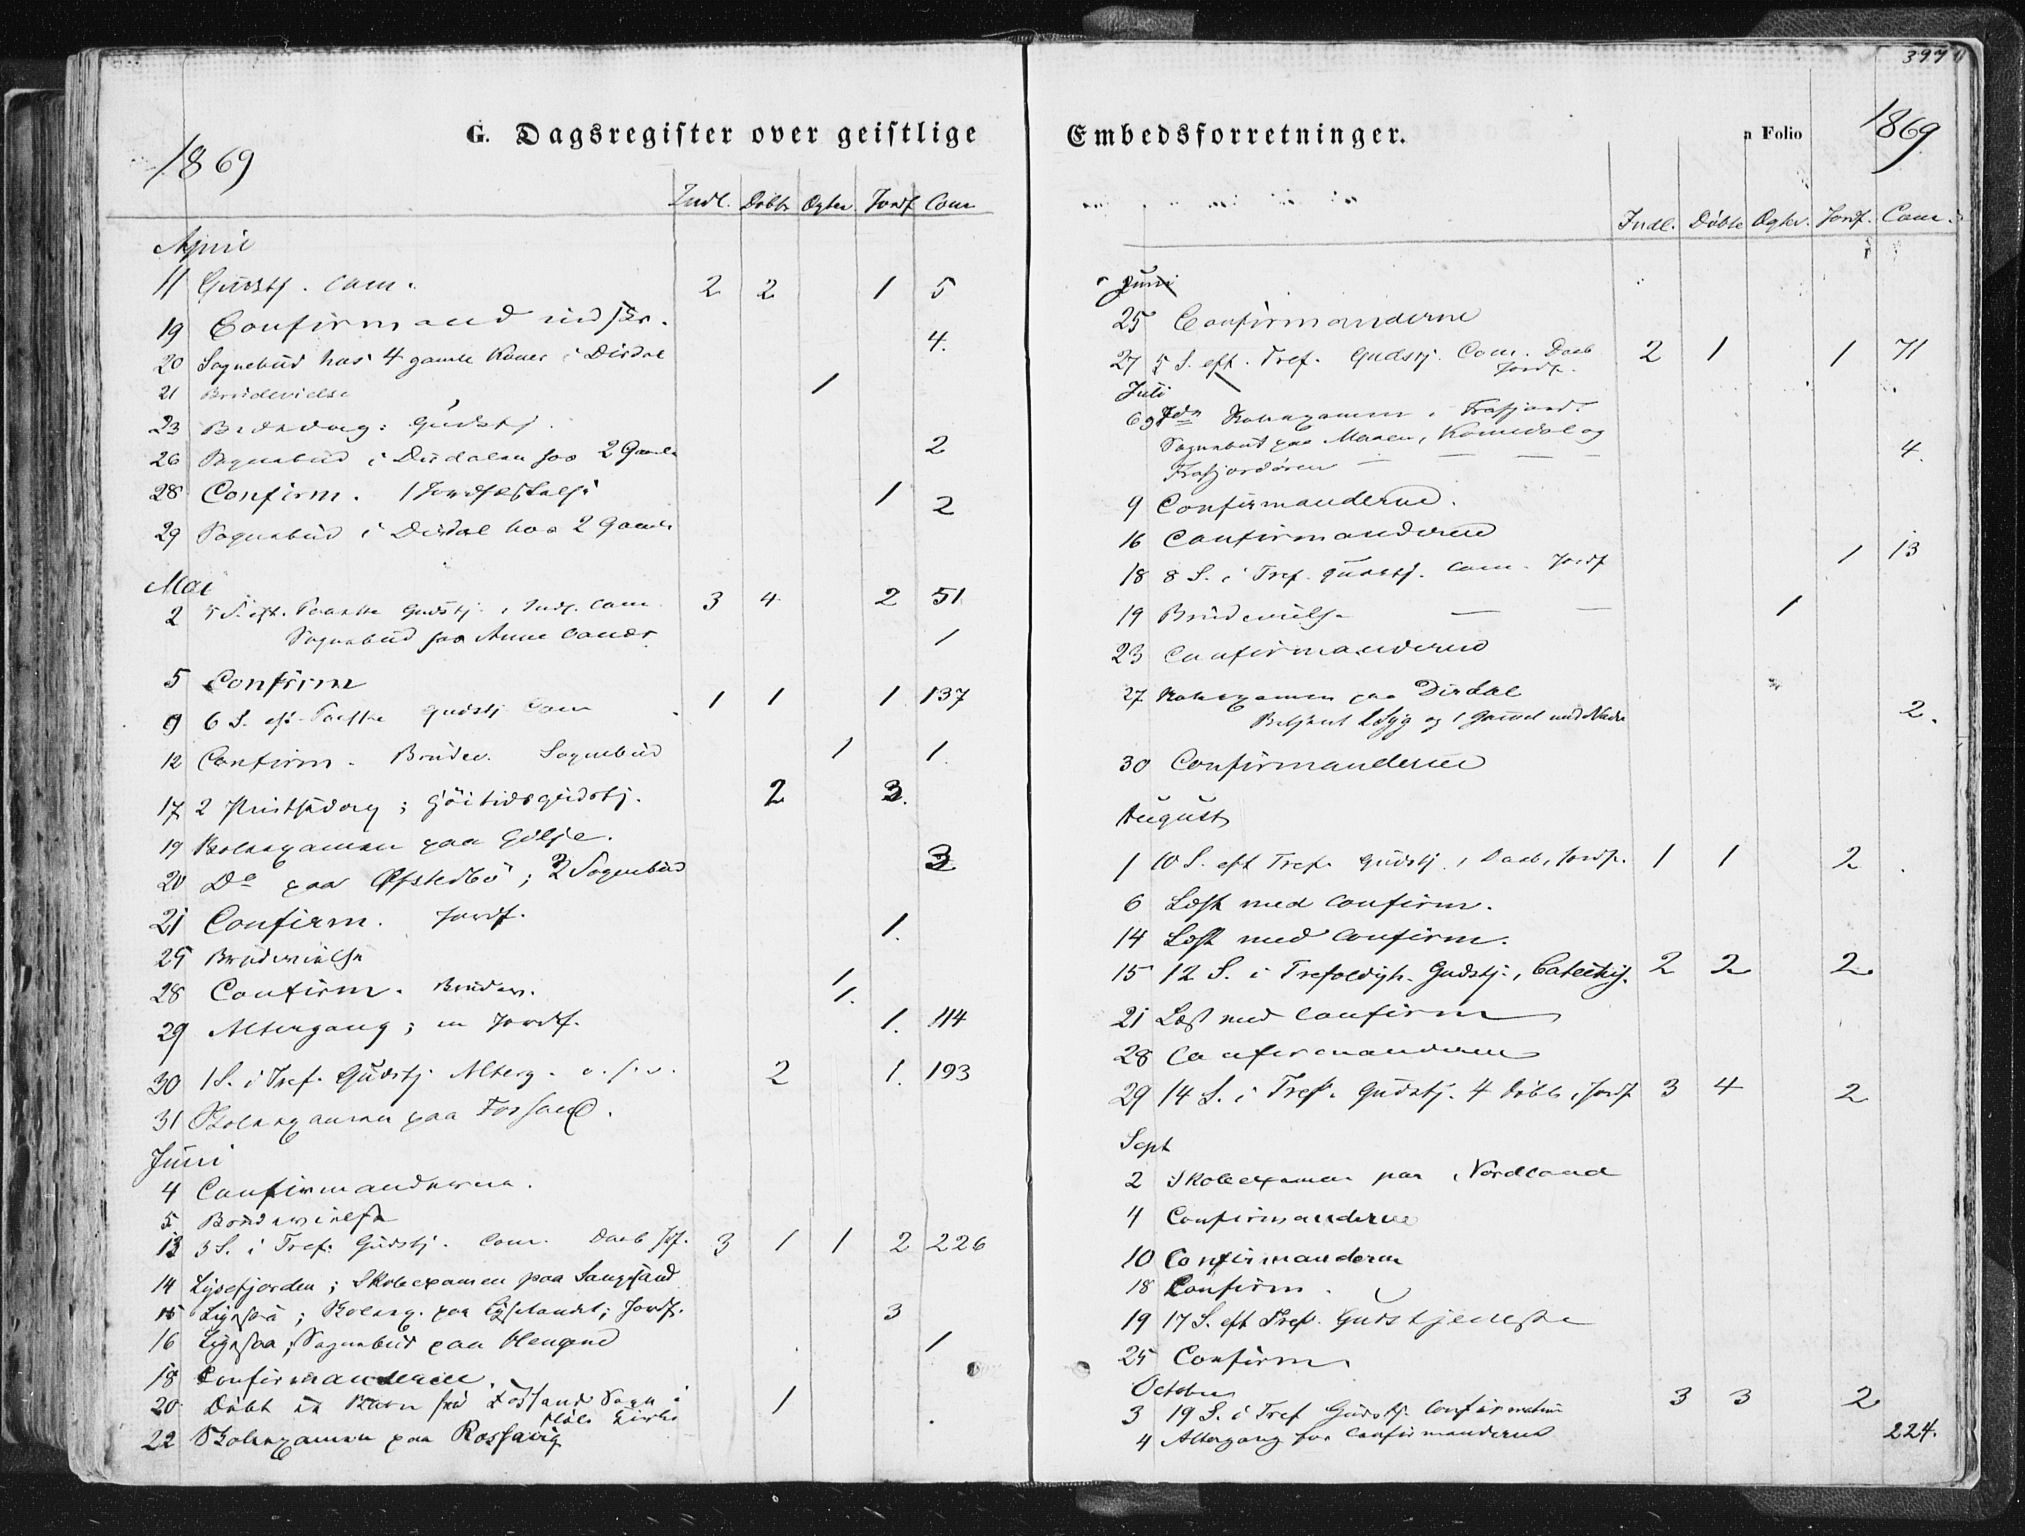 G. Dagsregister over geistlige
1869
Indl. Døbte Ægtev. Jordf. Com
April
11 Gudstj. Com. 2 2 1 5
19 Confirmand
20 Sognebud hos 4 gamle Koner i Dirdal 4.
21 Brudevielse 1
23 Bededag: Gudstj.
26 Sognebud i Dirdalen hos 2 Gamle 2
28 Confirm. 1 Jordfæstelse 1
29 Sognebud i Dirdal hos 2 Gamle 2
Mai
2 5 S. eft. Paaske Gudstj. Indl. Com. 3 4 2 51
Sognebud hos Anne 1
5 Confirm
9 6 S. eft. Paaske Gudstj Com 1 1 1 137
12 Confirm. Brudev. Sognebud 1 1.
17 2 Pintsedag; Høitidsgudstj. 2 3.
19 Skolexamen paa Gilje.
20 Do paa Øfstedbø; 3 Sognebud 3
21 Confirm. Jordf. 1.
25 Brudevielse
28 Confirm. Brudev. 1. 1.
29 Altergang; en Jordf. 1. 114
30 1 S. i Tref. Gudstj. Alterg. o. s. v. 2 1. 193
31 Skolexamen paa Forsand.
Juni
4 Confirmanderne.
5 Brudevielse
13 3 S. i Tref. Gudstj. Com. Daab Jf. 3 1 1 2 226
14 Lysefjorden; Skoleexamen paa Sangesand
15 Lysefj; Skolex. paa Lyselandet; Jordf. 3
16 Sognebud paa Hengne 1
18 Confirmanderne.
20 Døbt et Barn fra Fossand Sogn i
Høle Kirke 1
22 Skolexamen paa Rossavig
397
Embedsforretninger.
n Folio
1869
Indl. Døbte Ægtev. Jordf. Com.
Juni
25 Confirmanderne
27 5 S. eft. Tref. Gudstj. Com. Daab
Jordf. 2 1 1 71
Juli
6 Skolexamen i Frafjord.
Sognebud paa Maaen, Kommedal og
Frafjordøren 4.
9 Confirmanderne.
16 Confirmanderne
18 8 S. i Tref. Gudstj. Com. Jordf 1 13
19 Brudevielse 1
23 Confirmanderne
27 Skolexamen paa Dirdal
Betjent 1 Syg og 1 Gammel med Nadv 2.
30 Confirmanderne
August
1 10 S. eft Tref. Gudstj. Daab, Jordf. 1 1 2
6 Læst med Confirm.
14 Læst med Confirm.
15 12 S. i Trefoldigh. Gudstj., Catechis. 2 2 2
21 Læst med Confirm
28 Confirmanderne
29 14 S. i Tref. Gudstj. 4 Døbte, Jordf 3 4 2
Sept
2 Skoleexamen paa Nordland
4 Confirmanderne
10 Confirmandern
18 Confirm.
19 17 S. eft Tref. Gudstjeneste
25 Confirm.
October
3 19 S. i Tref Gudstj. Confirmation 3 3 2
4 Altergang for Confirmanderne 224.